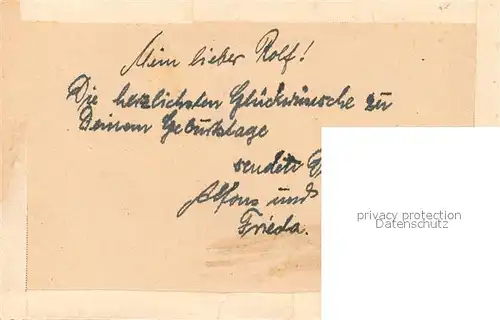 Mein lieber Rolf!
Die herzlichsten Glückwünsche zu
Deinem Geburtstage
sendet
Alfons und
Frieda.
privacy protection
Datenschutz